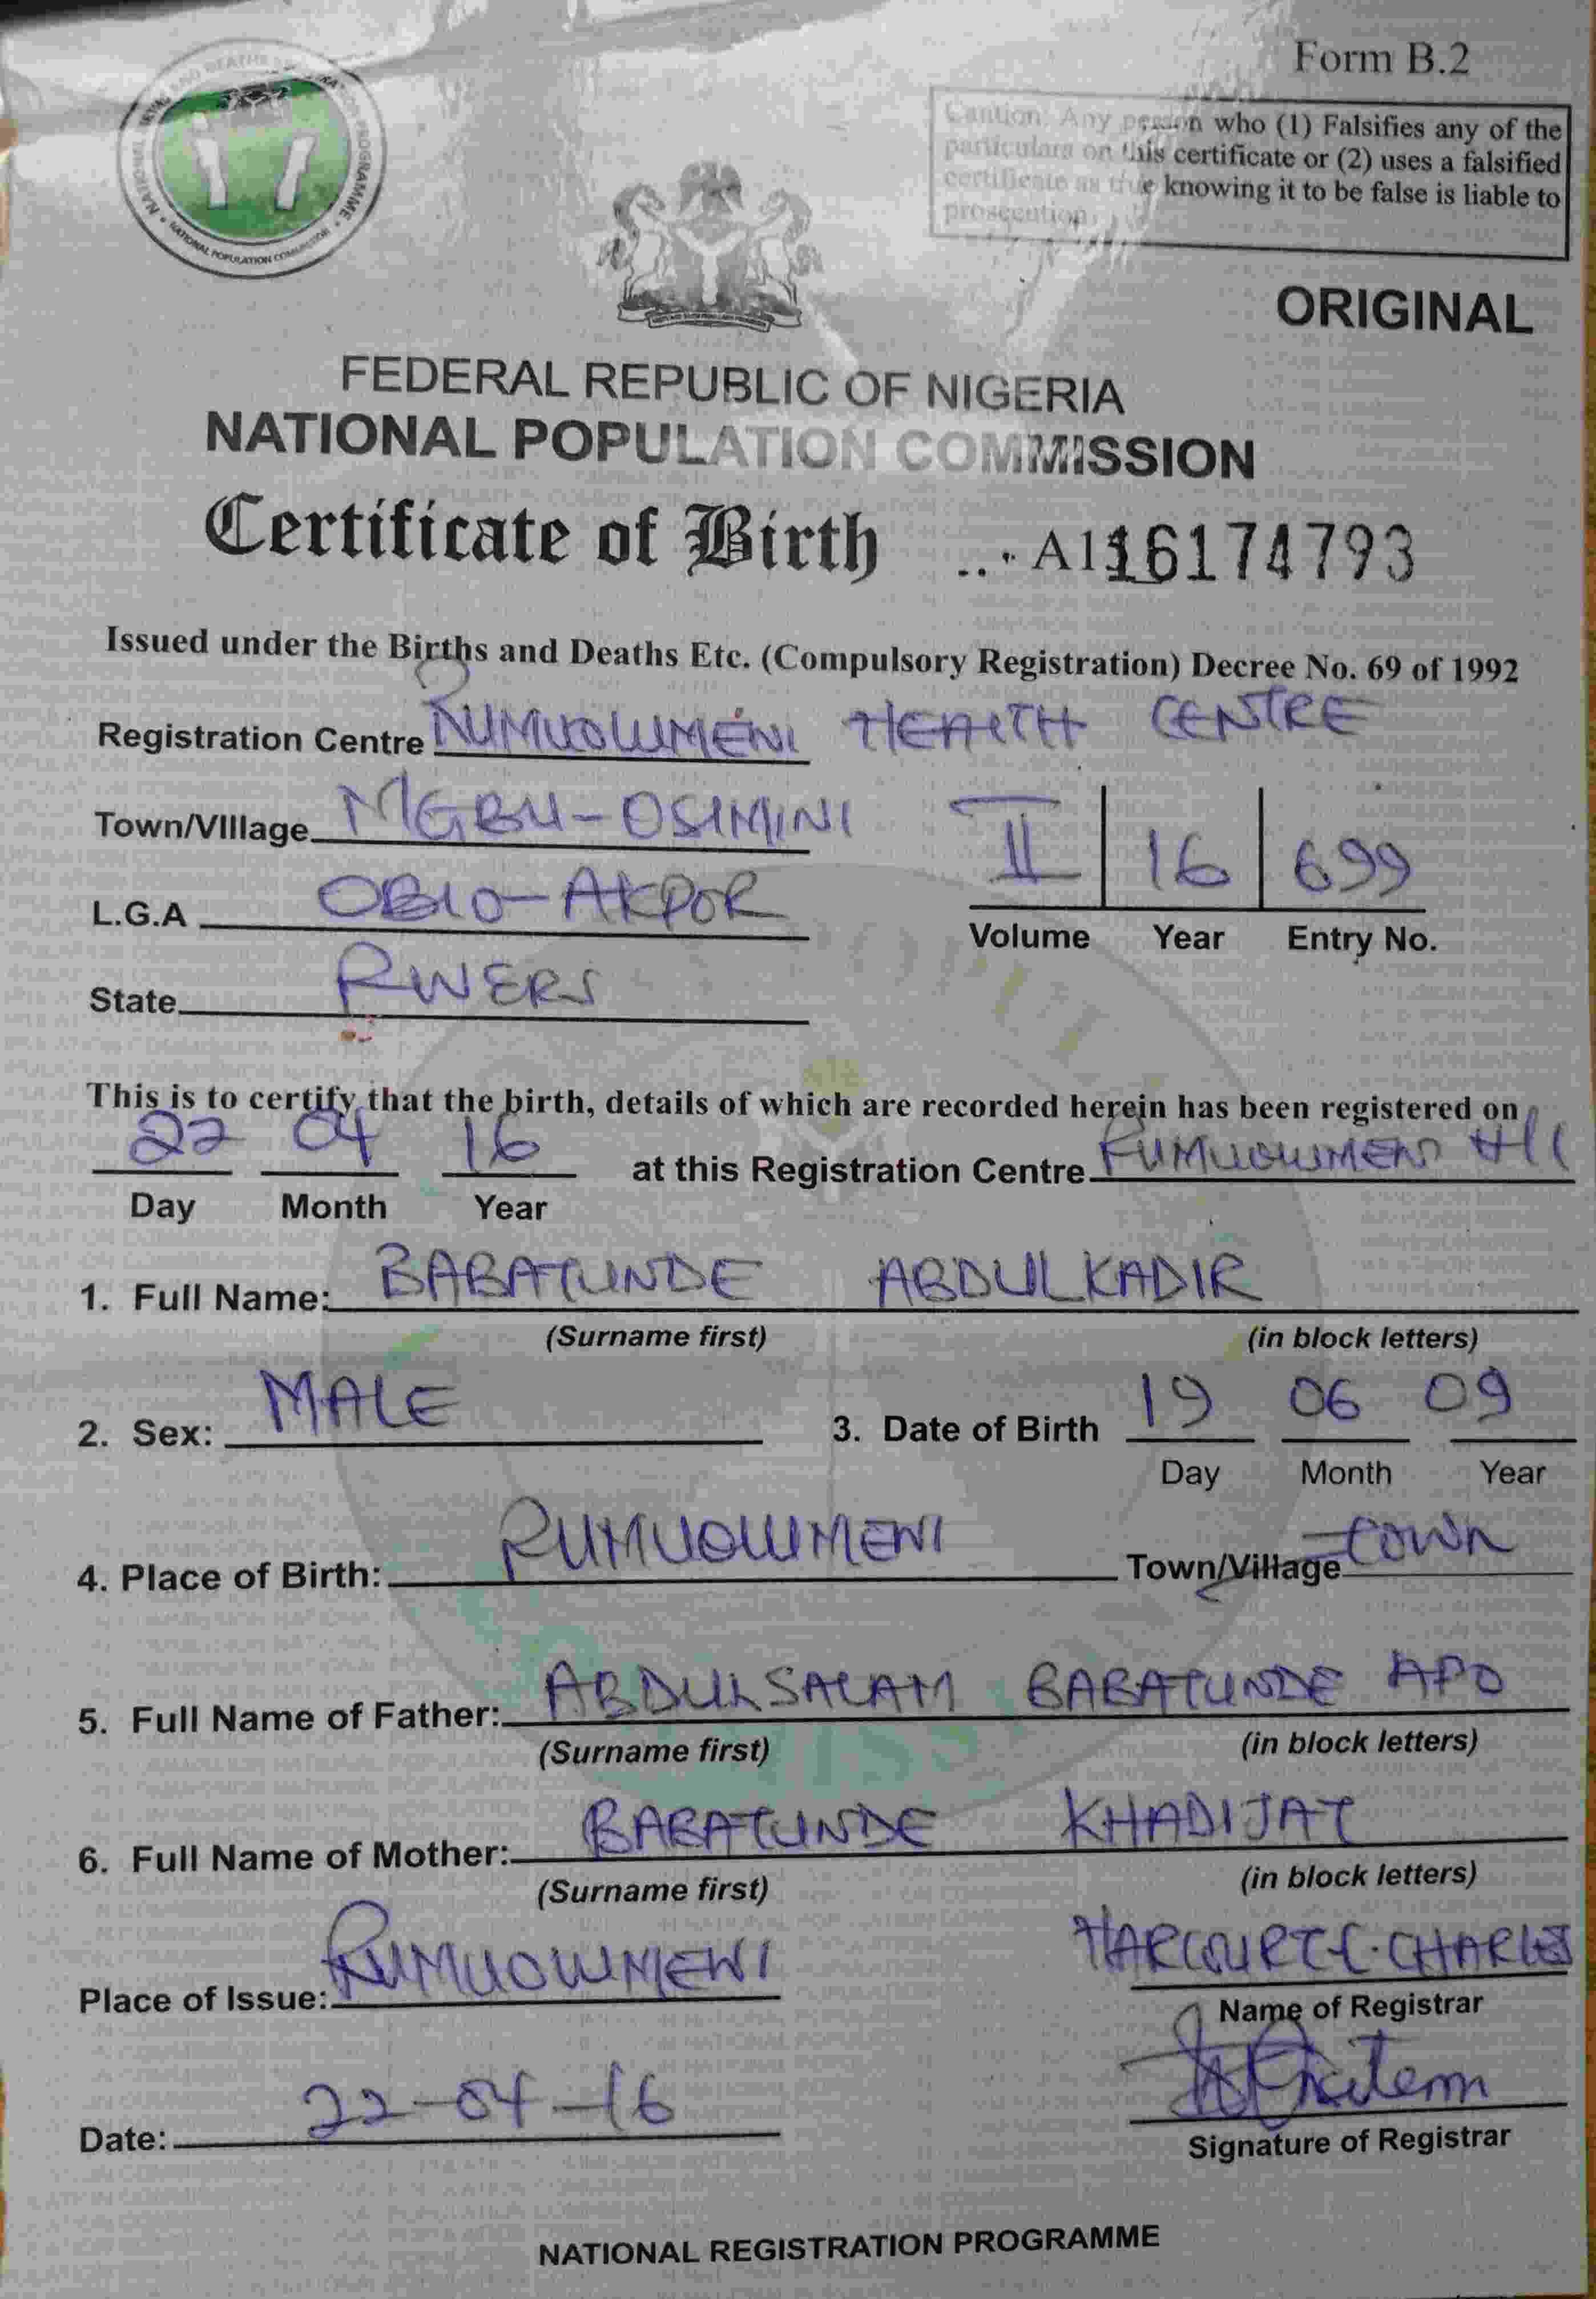 Form B.2
Caution: Any person who (1) Falsifies any of the
particulars on this certificate or (2) uses a falsified
certificate as true knowing it to be false is liable to
prosecution.
NATIONAL POPULATION COMMISSION
ORIGINAL
FEDERAL REPUBLIC OF NIGERIA
NATIONAL POPULATION COMMISSION
Certificate of Birth ... A1116174793
Issued under the Births and Deaths Etc. (Compulsory Registration) Decree No. 69 of 1992
Registration Centre RUMUOLUMENI HEALTH CENTRE
Town/Village MGBU-OSIMINI
II 16 699
L.G.A OBIO-AKPOR
Volume Year Entry No.
State RIVERS
This is to certify that the birth, details of which are recorded herein has been registered on
22 04 16 at this Registration Centre RUMUOLUMENI HC
Day Month Year
1. Full Name: BABATUNDE ABDULKADIR
(Surname first) (in block letters)
2. Sex: MALE 3. Date of Birth 19 06 09
Day Month Year
4. Place of Birth: RUMUOLUMENI Town/Village TOWN
5. Full Name of Father: ABDULSALAM BABATUNDE APO
(Surname first) (in block letters)
6. Full Name of Mother: BABATUNDE KHADIJAT
(Surname first) (in block letters)
Place of Issue: RUMUOLUMENI
HARCOURT-C. CHARLES
Name of Registrar
Date: 22-04-16
Signature of Registrar
NATIONAL REGISTRATION PROGRAMME